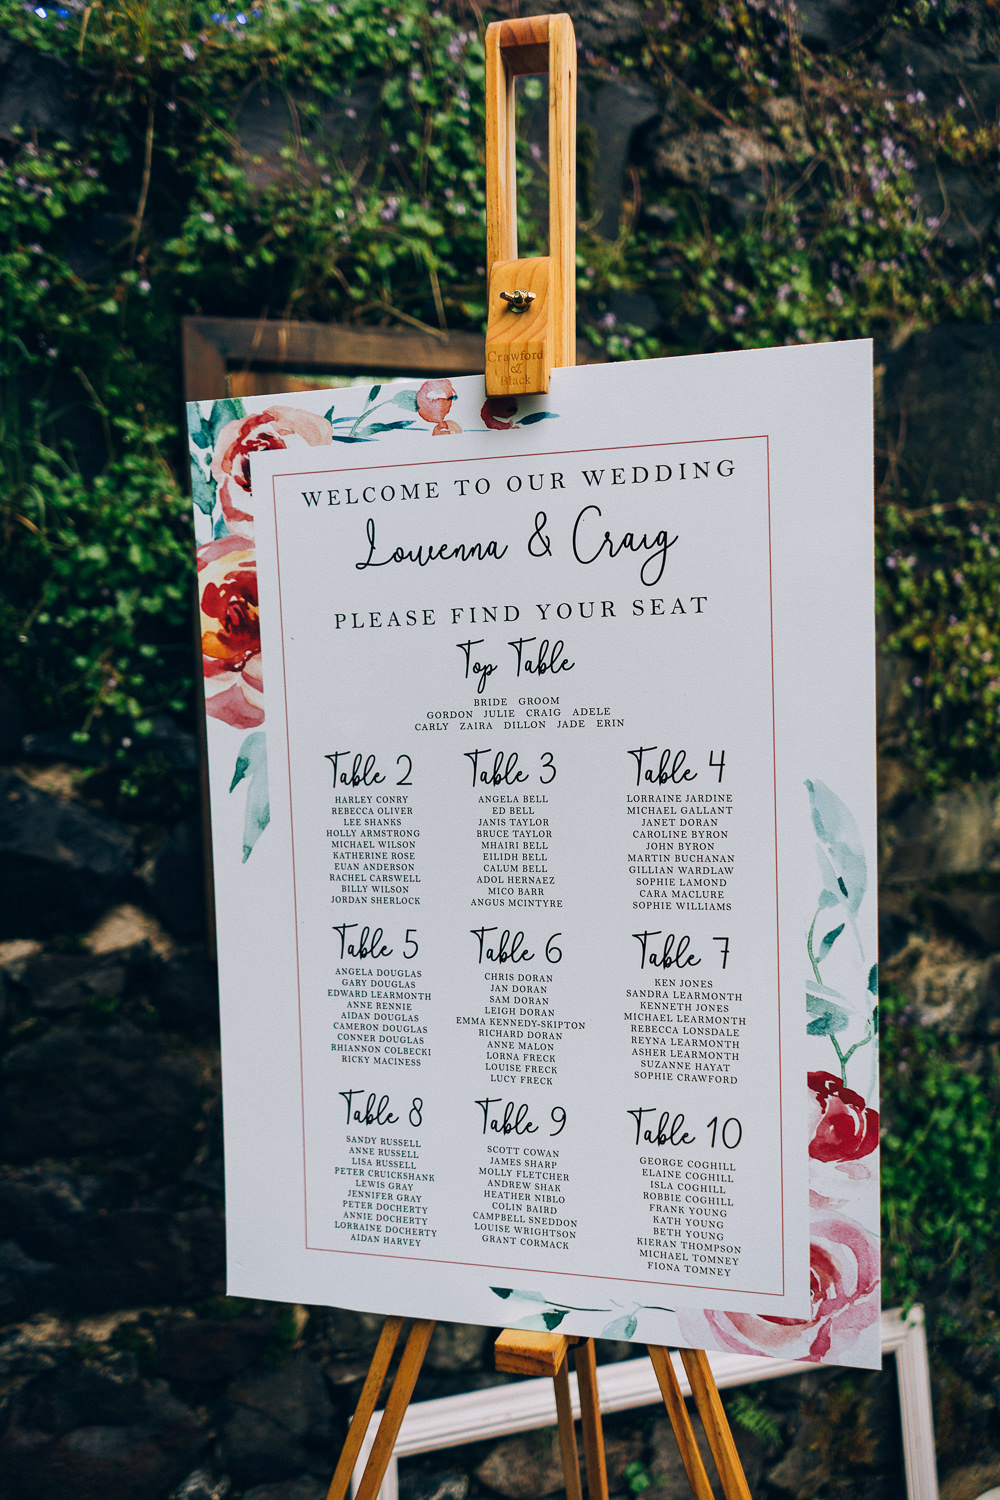 Crawford
&
Black
WELCOME TO OUR WEDDING
Lowenna & Craig
PLEASE FIND YOUR SEAT
Top Table
BRIDE GROOM
GORDON JULIE CRAIG ADELE
CARLY ZAIRA DILLON JADE ERIN
Table 2
HARLEY CONRY
REBECCA OLIVER
LEE SHANKS
HOLLY ARMSTRONG
MICHAEL WILSON
KATHERINE ROSE
EUAN ANDERSON
RACHEL CARSWELL
BILLY WILSON
JORDAN SHERLOCK
Table 3
ANGELA BELL
ED BELL
JANIS TAYLOR
BRUCE TAYLOR
MHAIRI BELL
EILIDH BELL
CALUM BELL
ADOL HERNAEZ
MICO BARR
ANGUS MCINTYRE
Table 4
LORRAINE JARDINE
MICHAEL GALLANT
JANET DORAN
CAROLINE BYRON
JOHN BYRON
MARTIN BUCHANAN
GILLIAN WARDLAW
SOPHIE LAMOND
CARA MACLURE
SOPHIE WILLIAMS
Table 5
ANGELA DOUGLAS
GARY DOUGLAS
EDWARD LEARMONTH
ANNE RENNIE
AIDAN DOUGLAS
CAMERON DOUGLAS
CONNER DOUGLAS
RHIANNON COLBECKI
RICKY MACINESS
Table 6
CHRIS DORAN
JAN DORAN
SAM DORAN
LEIGH DORAN
EMMA KENNEDY-SKIPTON
RICHARD DORAN
ANNE MALON
LORNA FRECK
LOUISE FRECK
LUCY FRECK
Table 7
KEN JONES
SANDRA LEARMONTH
KENNETH JONES
MICHAEL LEARMONTH
REBECCA LONSDALE
REYNA LEARMONTH
ASHER LEARMONTH
SUZANNE HAYAT
SOPHIE CRAWFORD
Table 8
SANDY RUSSELL
ANNE RUSSELL
LISA RUSSELL
PETER CRUICKSHANK
LEWIS GRAY
JENNIFER GRAY
PETER DOCHERTY
ANNIE DOCHERTY
LORRAINE DOCHERTY
AIDAN HARVEY
Table 9
SCOTT COWAN
JAMES SHARP
MOLLY FLETCHER
ANDREW SHAK
HEATHER NIBLO
COLIN BAIRD
CAMPBELL SNEDDON
LOUISE WRIGHTSON
GRANT CORMACK
Table 10
GEORGE COGHILL
ELAINE COGHILL
ISLA COGHILL
ROBBIE COGHILL
FRANK YOUNG
KATH YOUNG
BETH YOUNG
KIERAN THOMPSON
MICHAEL TOMNEY
FIONA TOMNEY